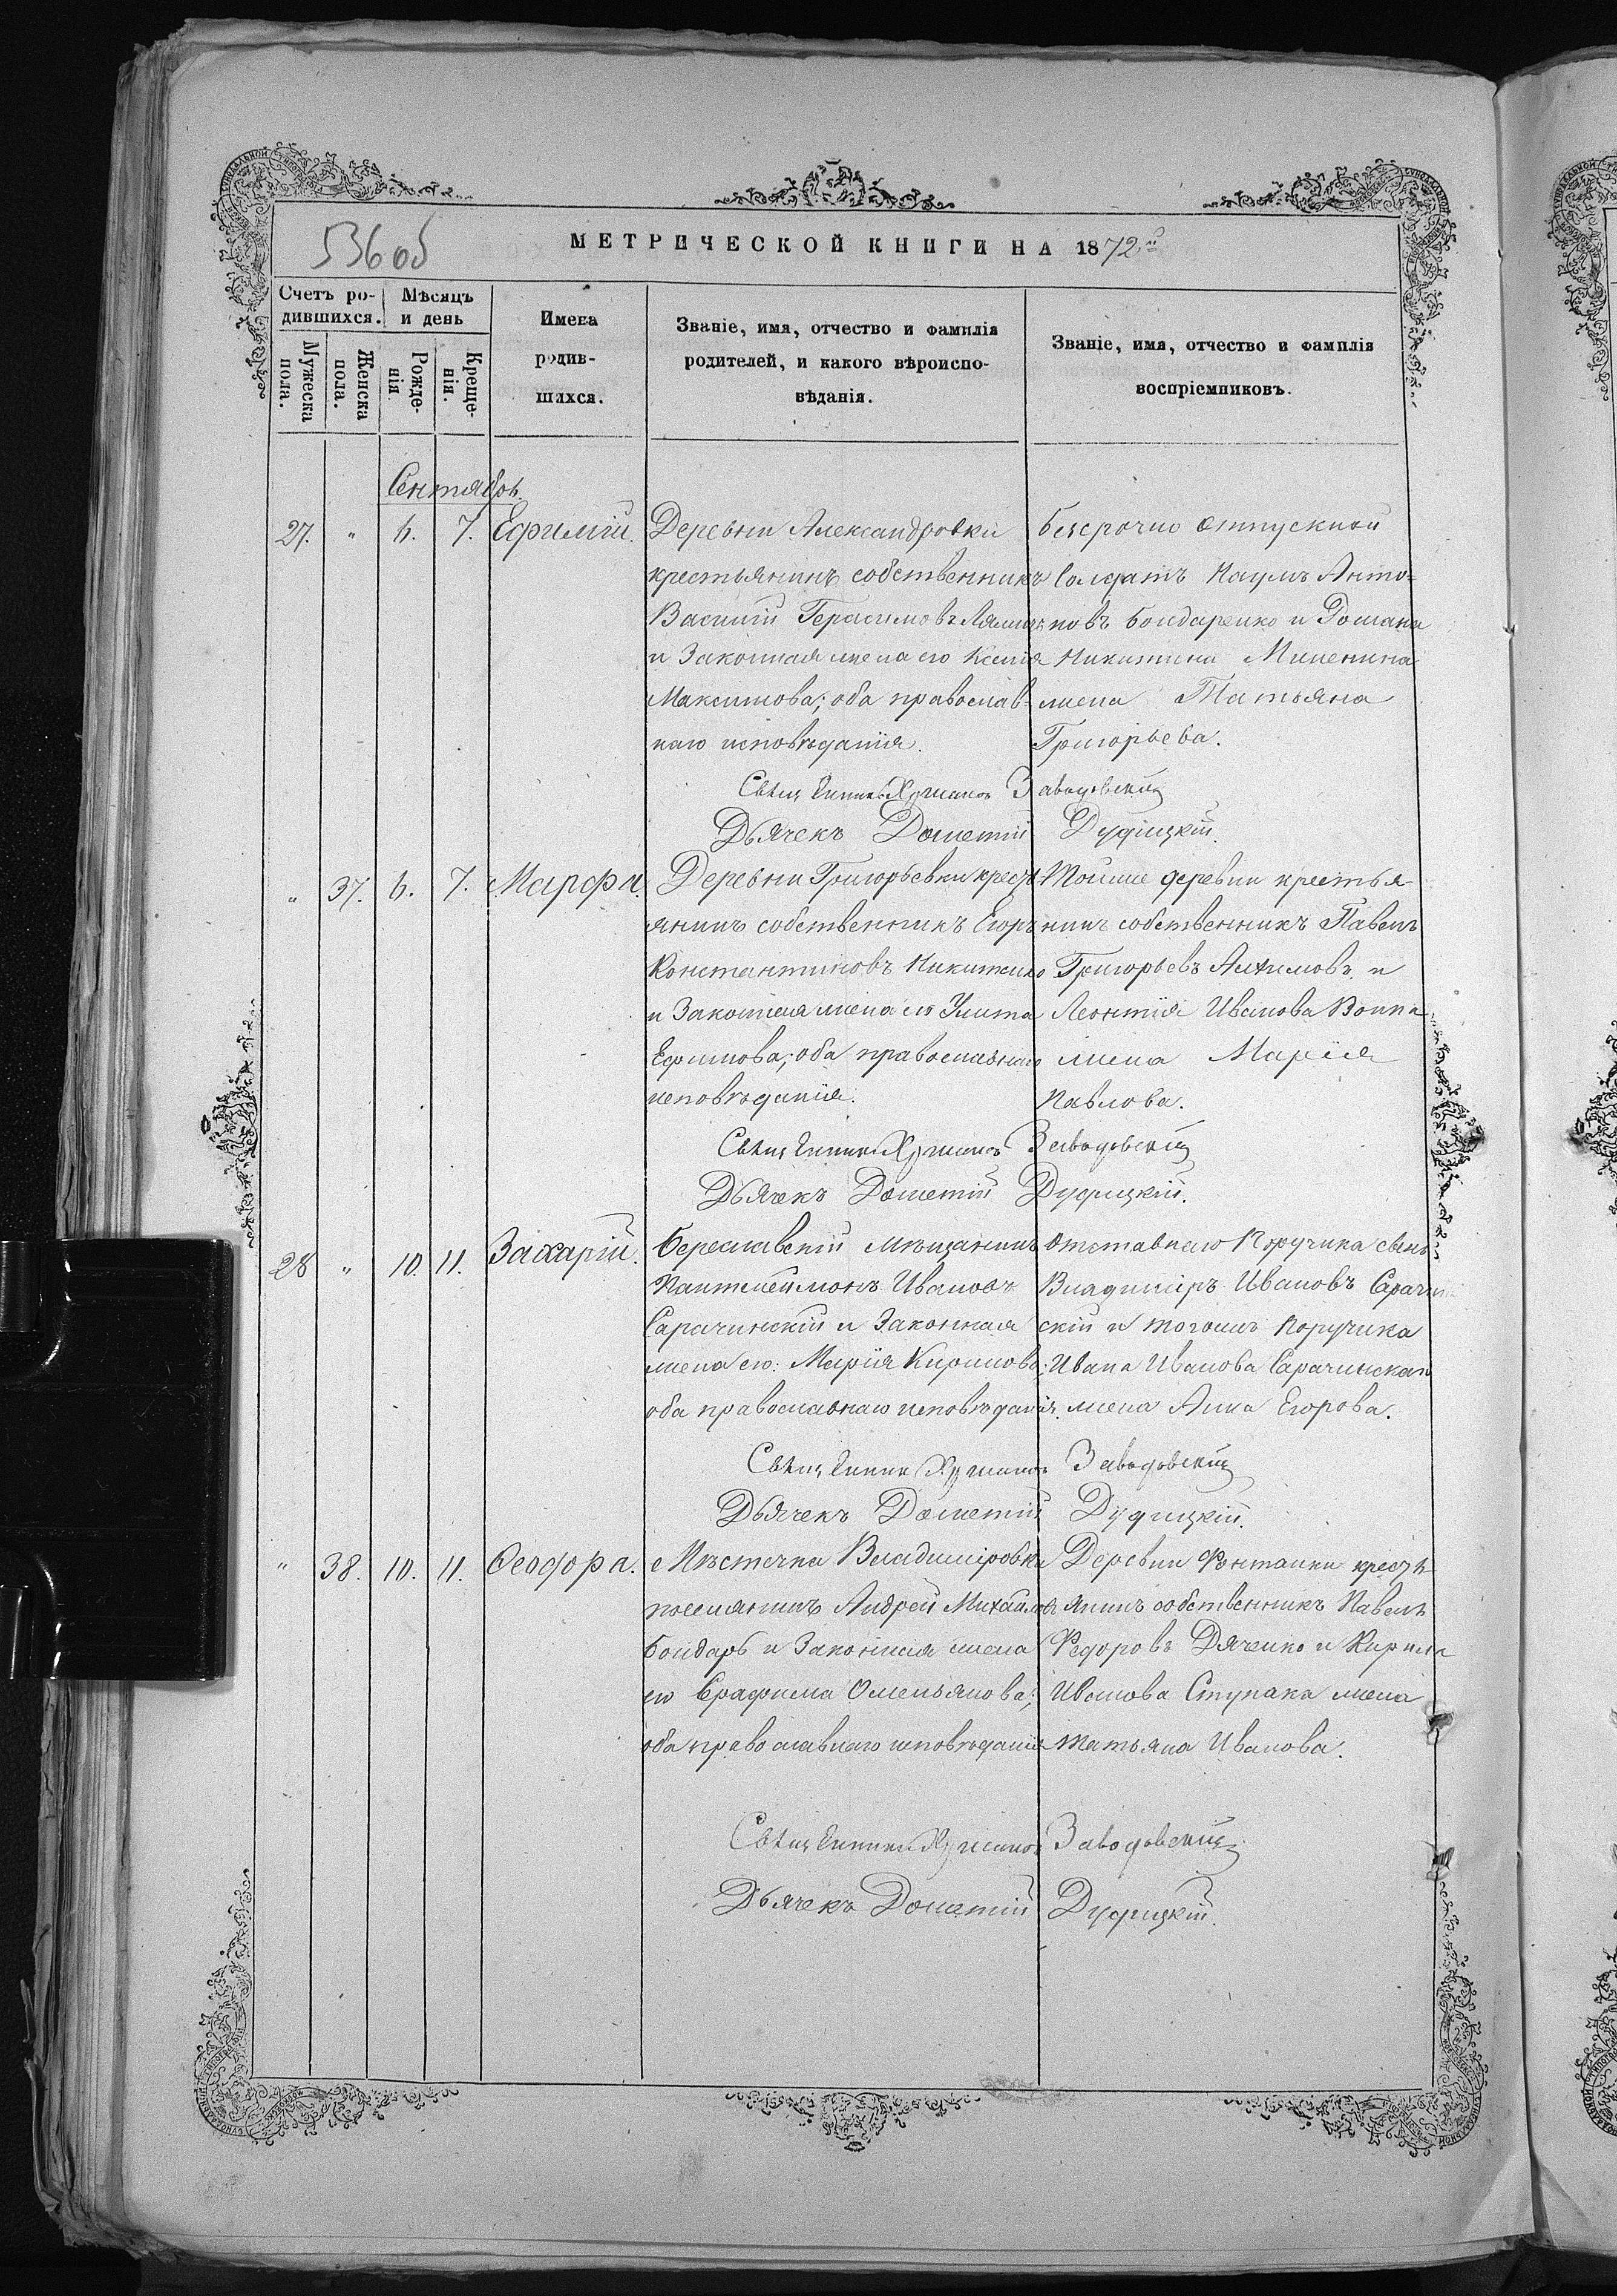 536 об
МЕТРИЧЕСКОЙ КНИГИ НА 1872й
Счетъ ро-
дившихся.
Мужеска
пола.
Женска
пола.
Мѣсяцъ
и день
Рожде-
нія
Креще-
нія.
Имена
родив-
шихся.
Званіе, имя, отчество и фамилія
родителей, и какого вѣроиспо-
вѣданія.
Званіе, имя, отчество и фамилія
воспріемниковъ.
Сентябрь.
27. " 6. 7. Ефимій.
Деревни Александровки
крестьянинъ собственникъ
Василій Герасимовъ
и Законная жена его Ксенія
Максимова; оба православ-
наго исповѣданія.
безсрочно отпускной
Солдатъ Наумъ Анто-
новъ Бондаренко и Романа
Никитина Миненина
жена Татьяна
Григорьева.
Священникъ Заводовскій
Дьячекъ Дометій Дудицкій.
" 37. 6. 7. Марфа.
Деревни Григорьевки кресть-
янинъ собственникъ Егоръ
Константиновъ Никитенко
и Законная жена его Улита
Ефимова; оба православнаго
исповѣданія.
Тойже деревни крестья-
нинъ собственникъ Павелъ
Григорьевъ и
Леонтія Иванова
жена Марія
Павлова.
Священникъ Заводовскій
Дьячекъ Дометій Дудицкій.
28 " 10. 11. Захарій.
Бериславскій мѣщанинъ
Пантелеймонъ Ивановъ
Сарачинскій и Законная
жена его: Марія Кирилова;
оба православнаго исповѣданія.
Отставнаго Поручика сынъ
Владиміръ Ивановъ Сарачин
скій и тогожъ Поручика
Ивана Иванова Сарачинскаго
жена Анна Егорова.
Священникъ Заводовскій
Дьячекъ Дометій Дудицкій.
" 38. 10. 11. Феодора.
Мѣстечка Владиміровки
поселянинъ Андрей Михайловъ
Бондарь и Законная жена
его Серафима Омельянова;
оба православнаго исповѣданія
Деревни Фонтанки кресть-
янинъ собственникъ Павелъ
Федоровъ Дяченко и Кирила
Иванова Ступака жена
Татьяна Иванова.
Священникъ Заводовскій
Дьячекъ Дометій Дудицкій.